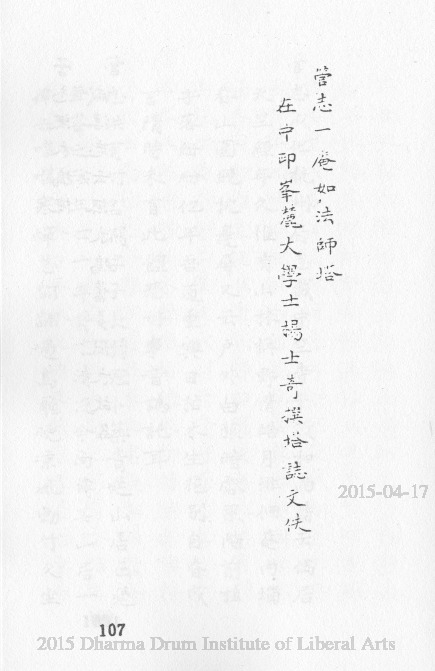 管志一庵如法師塔
在中印峯麓大學士楊士奇撰塔誌文佚
2015-04-17
107
2015 Dharma Drum Institute of Liberal Arts